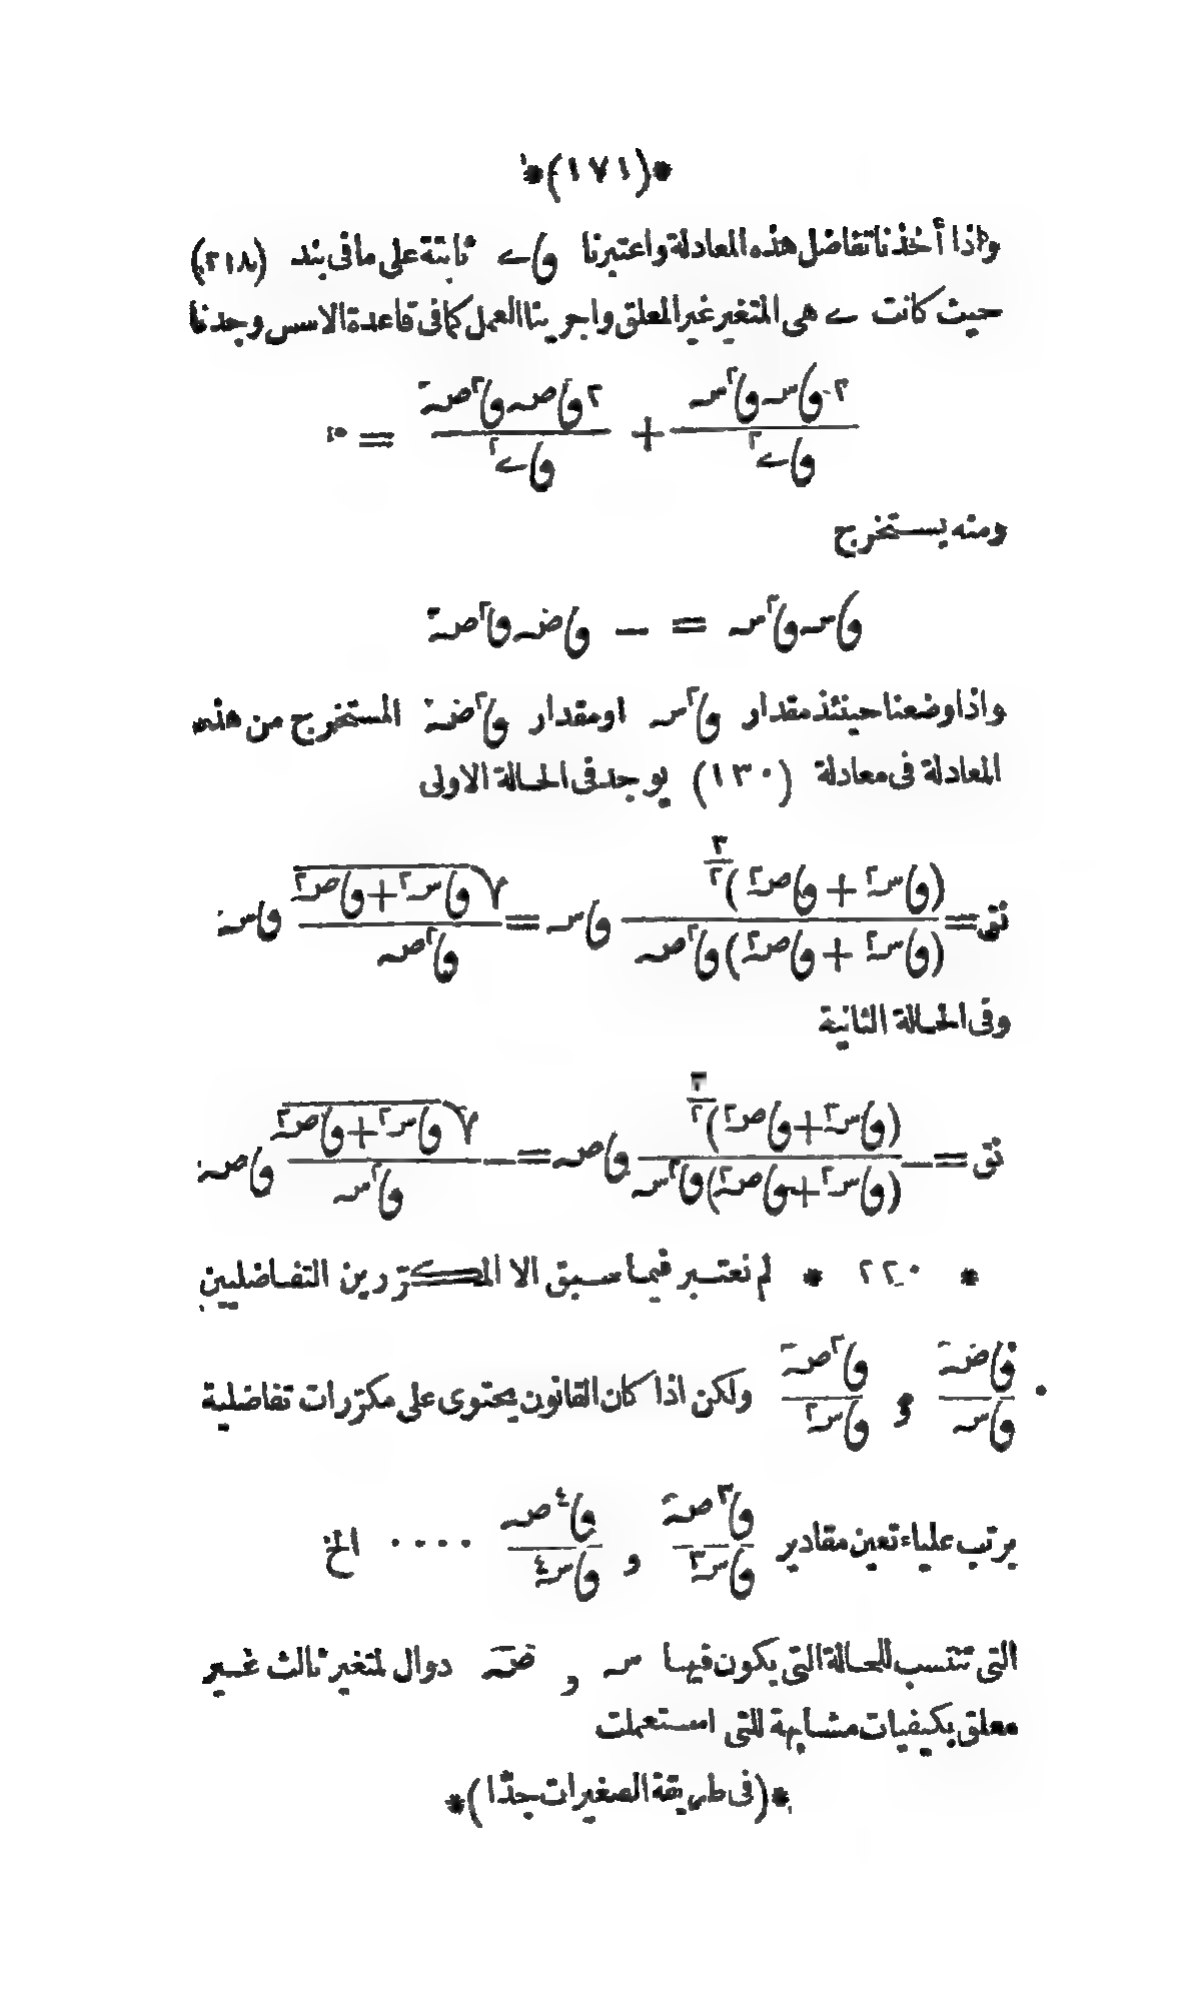 *(١٧١)*
واذا أخذنا تفاضل هذه المعادلة واعتبرنا ى ے ثابتة على ما فى بند (٢١٨)
حيث كانت ے هى المتغير غير المعلق واجرينا العمل كما فى قاعدة الاسس وجدنا
٢ ى س ى٢ س / ى ے٢ + ٢ ى صہ ى٢ صہ / ى ے٢ = ٠
ومنه يستخرج
ى س ى٢ س = − ى صہ ى٢ صہ
واذا وضعنا حينئذ مقدار ى٢ س او مقدار ى٢ صہ المستخرج من هذه
المعادلة فى معادلة (١٣٠) يوجد فى الحالة الاولى
نق = (ى س٢ + ى صہ٢)٣/٢ / (ى س٢ + ى صہ٢) ى٢ صہ ى س = √ ى س٢ + ى صہ٢ / ى٢ صہ ى س
وفى الحالة الثانية
نق = − (ى س٢ + ى صہ٢)٣/٢ / (ى س٢ + ى صہ٢) ى٢ س ى صہ = − √ ى س٢ + ى صہ٢ / ى٢ س ى صہ
* ٢٢٠ * لم نعتبر فيما سبق الا المكررين التفاضليين
ى صہ / ى س و ى٢ صہ / ى س٢ ولكن اذا كان القانون يحتوى على مكررات تفاضلية
برتب علياء تعين مقادير ى٣ صہ / ى س٣ و ى٤ صہ / ى س٤ .... الخ
التى تنتسب للحالة التى يكون فيها س و صہ دوال لمتغير ثالث غير
معلق بكيفيات مشابهة للتى استعملت
*(فى طريقة الصغيرات جدّا)*